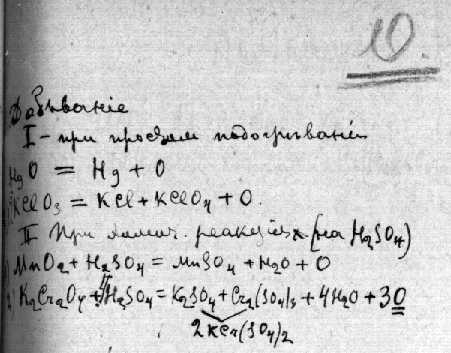 O.
Добыванiе
I - при простом подогрѣванiи
HgO = Hg + O
KClO3 = KCl + KClO4 + O.
II При химич. реакцiях (на H2SO4)
MnO2 + H2SO4 = MnSO4 + H2O + O
K2Cr2O7 + 4H2SO4 = K2SO4 + Cr2(SO4)3 + 4H2O + 3O
2KCr(SO4)2